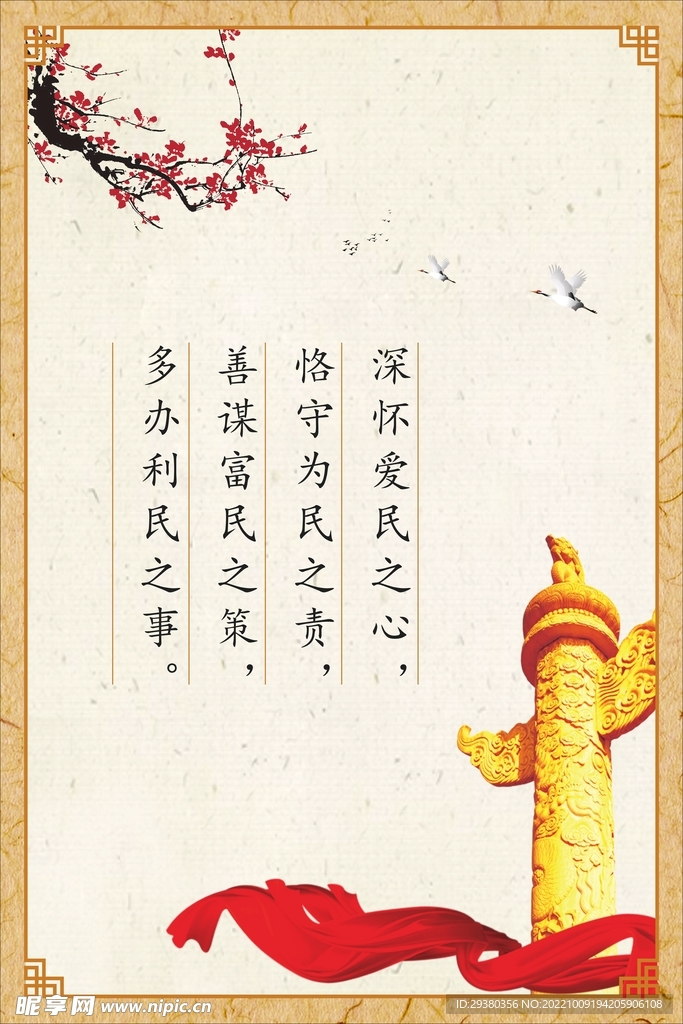 深怀爱民之心，
恪守为民之责，
善谋富民之策，
多办利民之事。
昵享网 www.nipic.cn
ID:29380356 NO:20221009194205906108